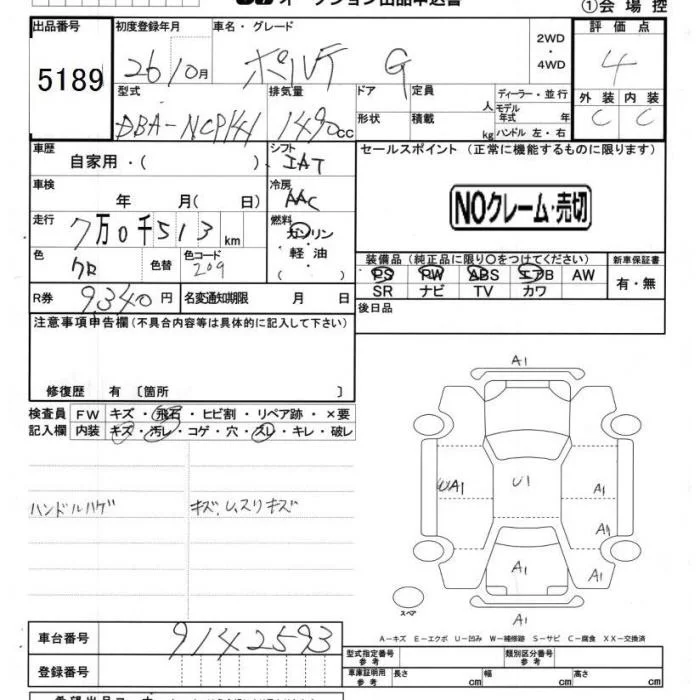 オークション出品申込書
①会場控
出品番号 初度登録年月 車名・グレード 2WD・4WD 評価点
5189 26/0月 ポルテ G 4
型式 排気量 ドア 定員 人 ディーラー・並行 外装 内装
DBA-NCP141 1490cc 形状 積載 kg モデル年式 年 C C
ハンドル 左・右
車歴 自家用・( ) シフト IAT セールスポイント(正常に機能するものに限ります)
車検 年 月( 日) 冷房 AAC
NOクレーム・売切
走行 7万0千513km 燃料 ガソリン 軽油 ( )
色 クロ 色替 色コード 209
装備品(純正品に限り○をつけてください) 新車保証書
PS PW ABS エアB AW 有・無
SR ナビ TV カワ
R券 9,340円 名変通知期限 月 日 後日品
注意事項申告欄(不具合内容等は具体的に記入して下さい)
修復歴 有 〔箇所 〕
検査員 FW キズ・飛石・ヒビ割・リペア跡・×要
記入欄 内装 キズ・汚レ・コゲ・穴・スレ・キレ・破レ
ハンドルハゲ キズ、ウスリキズ
A1
UA1 U1 A1
A1
A1 A1
A1
スペア
A−キズ E−エクボ U−凹み W−補修跡 S−サビ C−腐食 XX−交換済
車台番号 9142593
登録番号
型式指定番号 参考 類別区分番号 参考
車庫証明用 参考 長さ cm 幅 cm 高さ cm
希望出品コーナー